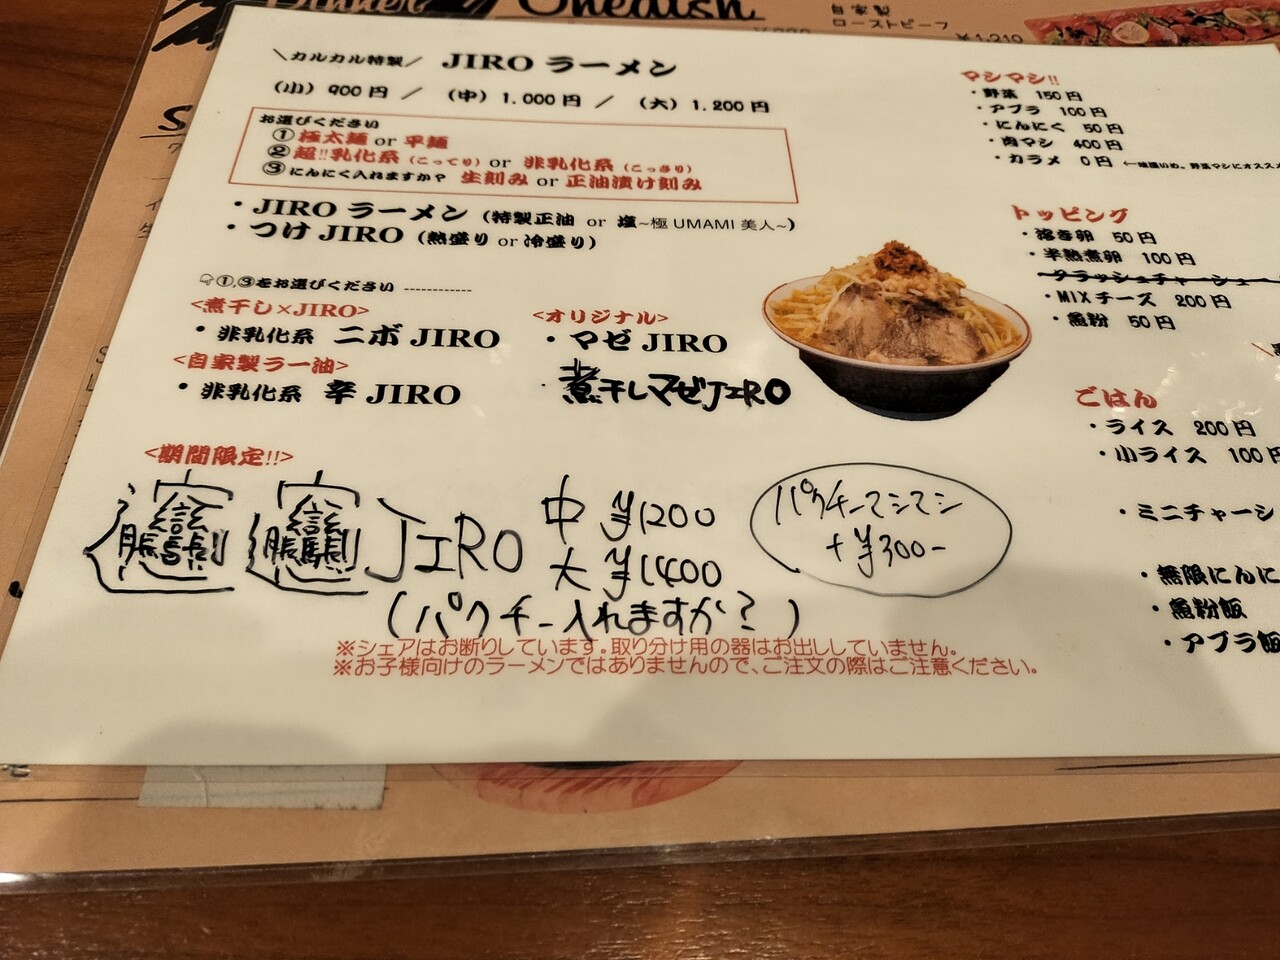 Dinner
Onedish
自家製
ローストビーフ
¥1,210
＼カルカル特製／ JIRO ラーメン
（小）900円 ／ （中）1,000円 ／ （大）1,200円
お選びください
①極太麺 or 平麺
②超!!乳化系（こってり）or 非乳化系（こっさり）
③にんにく入れますか？ 生刻み or 正油漬け刻み
・JIRO ラーメン（特製正油 or 塩~極UMAMI美人~）
・つけ JIRO（熱盛り or 冷盛り）
①,③をお選びください ------------
<煮干し×JIRO>
・非乳化系 ニボ JIRO
<自家製ラー油>
・非乳化系 辛 JIRO
<オリジナル>
・マゼ JIRO
・煮干しマゼJIRO
<期間限定!!>
𰻞𰻞JIRO 中 ¥1200
大 ¥1400
（パクチー入れますか？）
パクチーマシマシ
+¥300-
※シェアはお断りしています。取り分け用の器はお出ししていません。
※お子様向けのラーメンではありませんので、ご注文の際はご注意ください。
マシマシ!!
・野菜 150円
・アブラ 100円
・にんにく 50円
・肉マシ 400円
・カラメ 0円
トッピング
・溶き卵 50円
・半熟煮卵 100円
・クラッシュチャーシュー
・MIXチーズ 200円
・魚粉 50円
ごはん
・ライス 200円
・小ライス 100円
・ミニチャーシ
・無限にんに
・魚粉飯
・アブラ飯